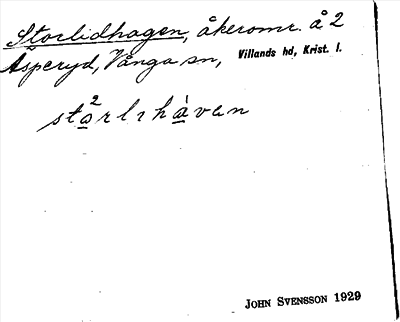 Storlidhagen, åkeromr. å 2
Äsperyd, Vånga sn, Villands hd, Krist. l.
sta²rlıhàvan
JOHN SVENSSON 1929